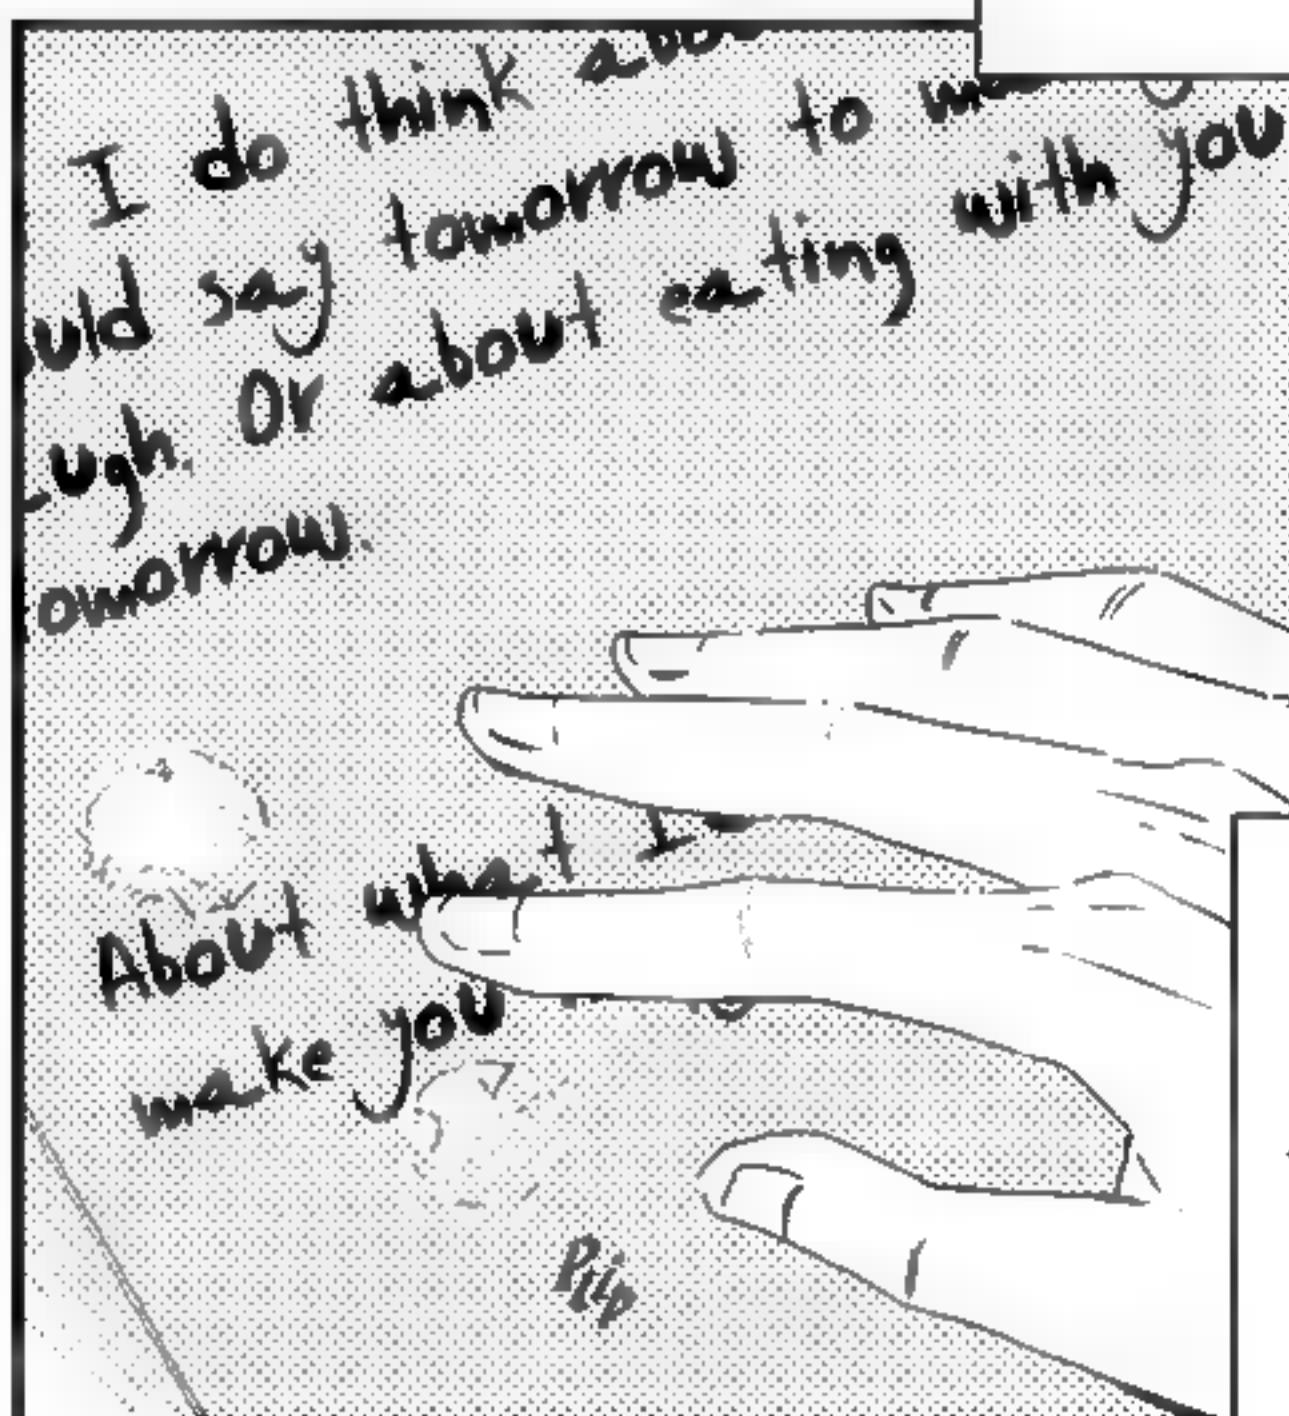 I do think
say tomorrow to
Or about eating with you
About what I
make you
Plip